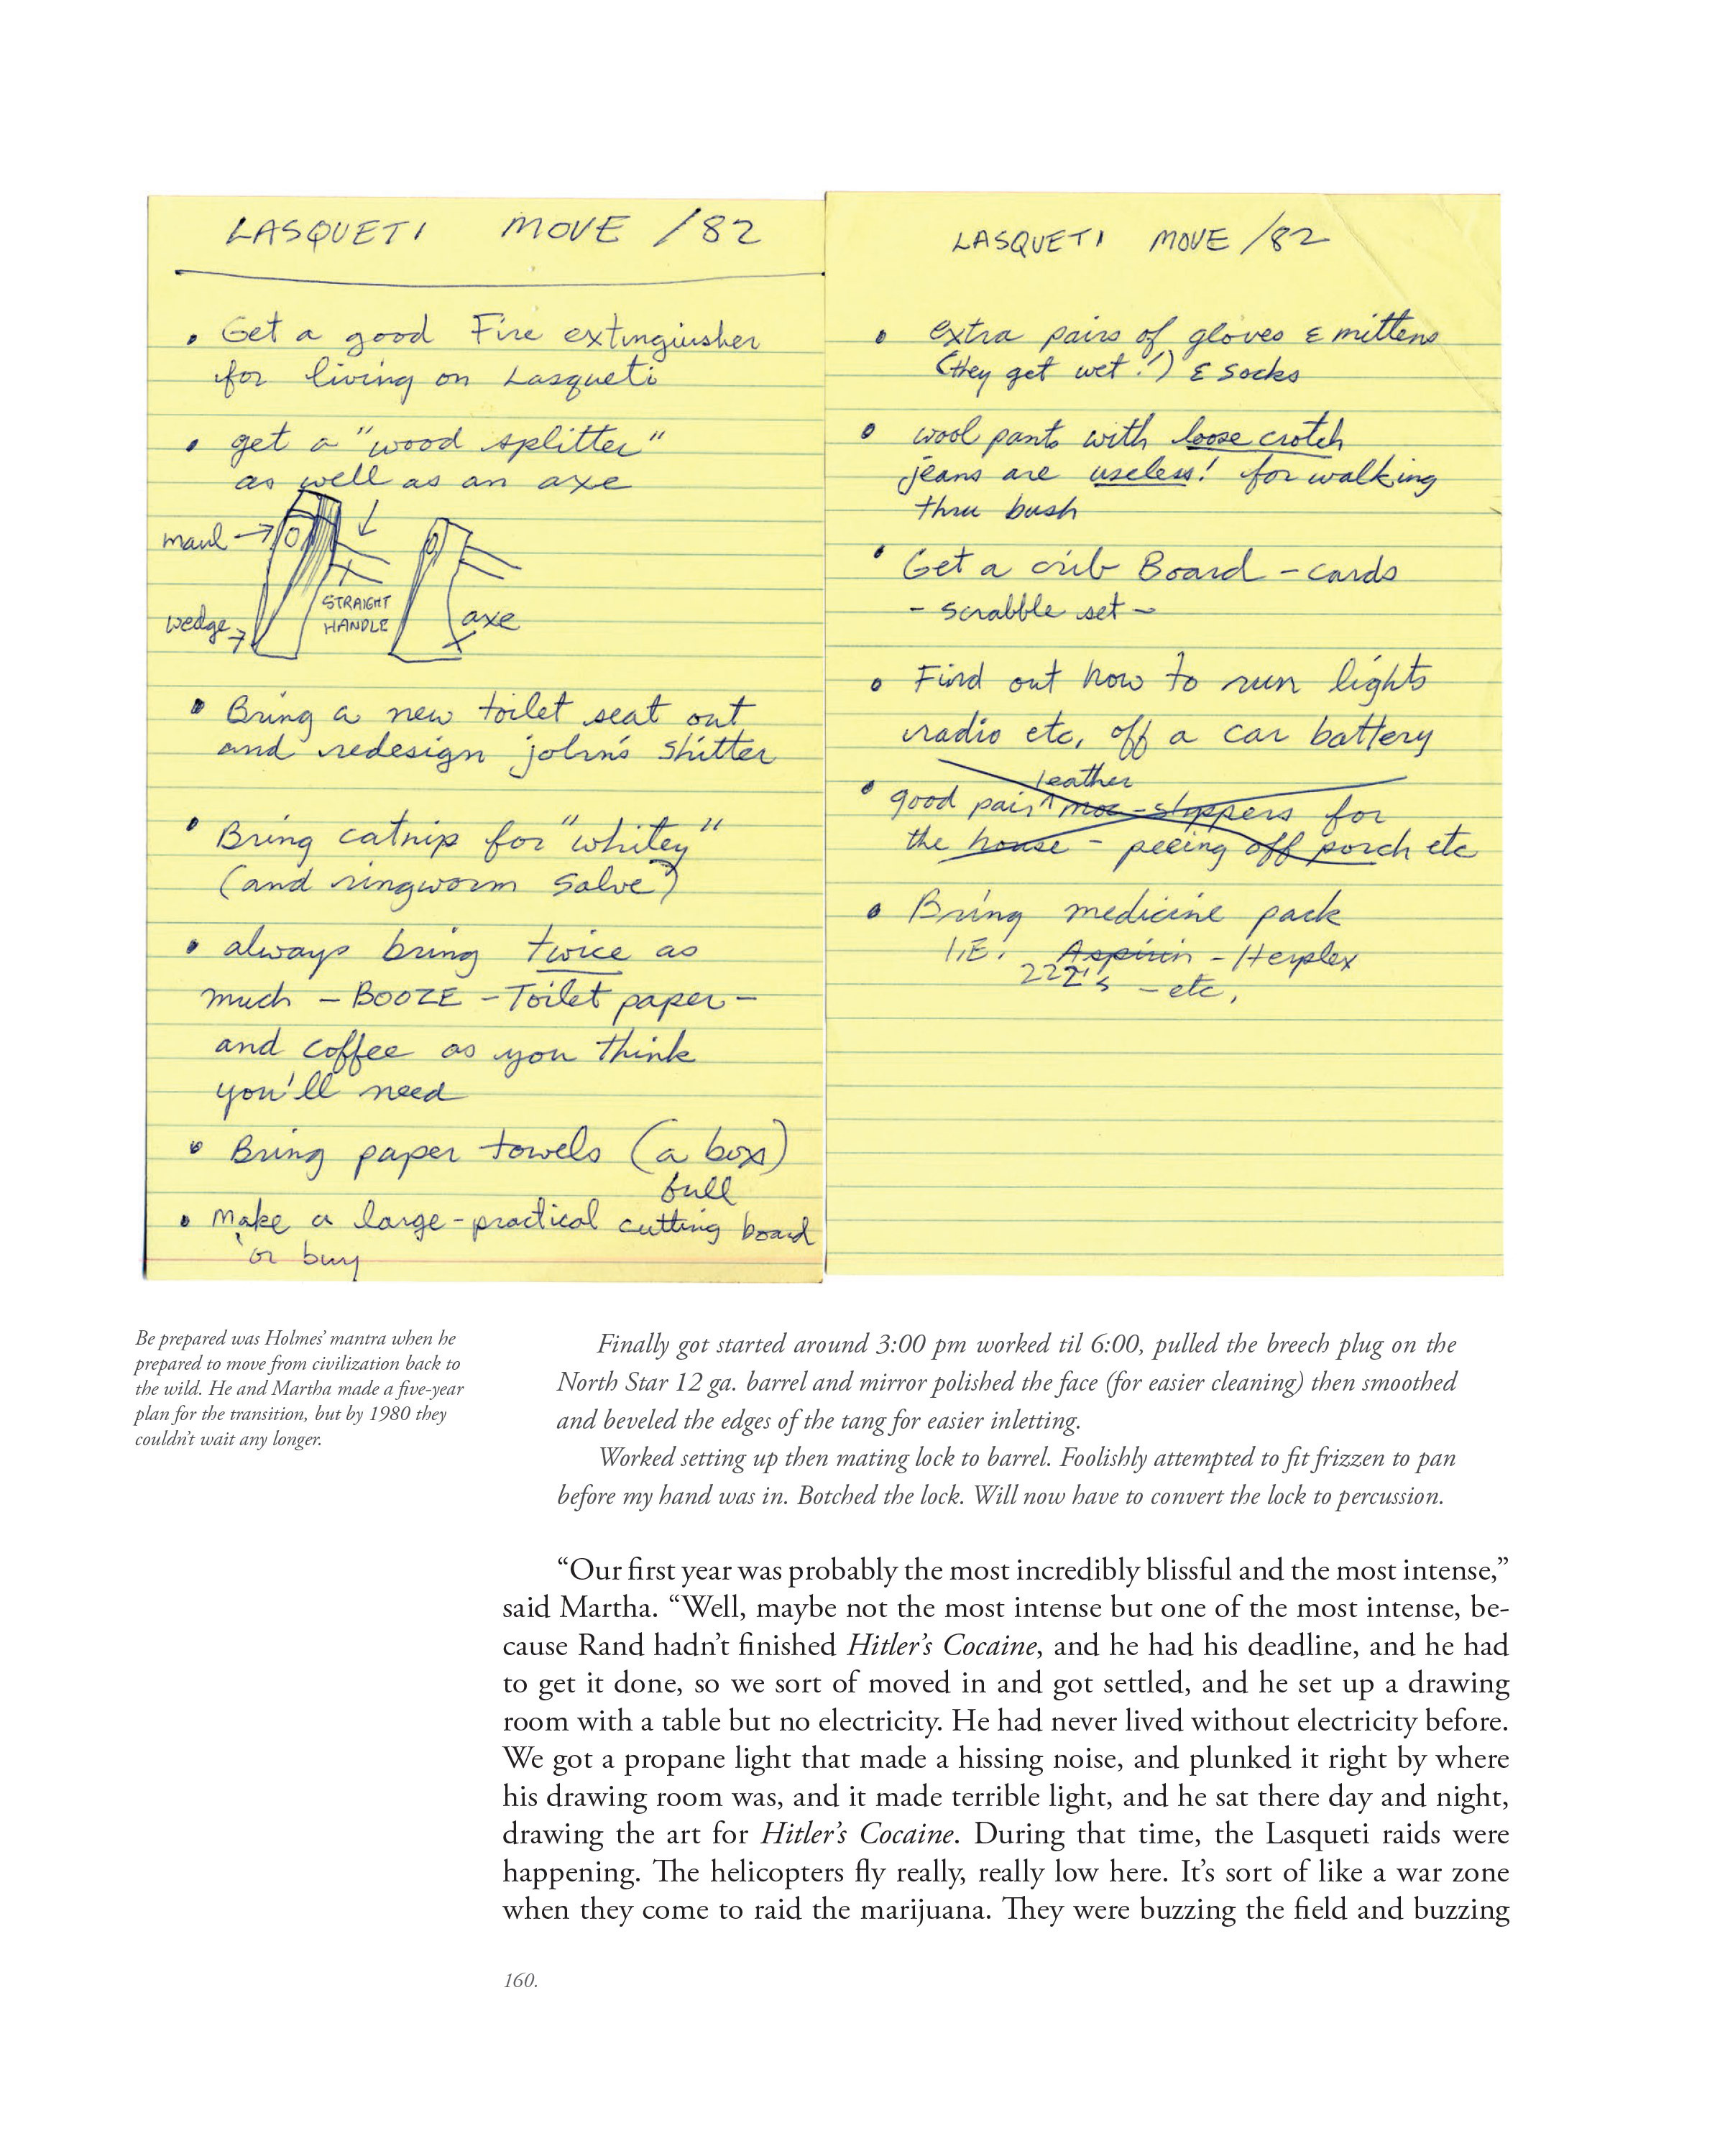 LASQUETI MOVE /82
• Get a good Fire extinguisher
for living on Lasqueti
• get a "wood splitter"
as well as an axe
maul
wedge
STRAIGHT
HANDLE
axe
• Bring a new toilet seat out
and redesign john's shitter
• Bring catnip for "whitey"
(and ringworm salve)
• always bring twice as
much – BOOZE – Toilet paper –
and coffee as you think
you'll need
• Bring paper towels (a box)
full
• make a large-practical cutting board
or buy
LASQUETI MOVE /82
• extra pairs of gloves & mittens
(they get wet!) & socks
• wool pants with loose crotch
jeans are useless! for walking
thru bush
• Get a crib Board – cards
– scrabble set –
• Find out how to run lights
radio etc, off a car battery
leather
• good pair ^ moc-slippers for
the house – peeing off porch etc
• Bring medicine pack
I.E. Aspirin – Herplex
222's – etc,
Be prepared was Holmes' mantra when he
prepared to move from civilization back to
the wild. He and Martha made a five-year
plan for the transition, but by 1980 they
couldn't wait any longer.
Finally got started around 3:00 pm worked til 6:00, pulled the breech plug on the
North Star 12 ga. barrel and mirror polished the face (for easier cleaning) then smoothed
and beveled the edges of the tang for easier inletting.
Worked setting up then mating lock to barrel. Foolishly attempted to fit frizzen to pan
before my hand was in. Botched the lock. Will now have to convert the lock to percussion.
"Our first year was probably the most incredibly blissful and the most intense,"
said Martha. "Well, maybe not the most intense but one of the most intense, be-
cause Rand hadn't finished Hitler's Cocaine, and he had his deadline, and he had
to get it done, so we sort of moved in and got settled, and he set up a drawing
room with a table but no electricity. He had never lived without electricity before.
We got a propane light that made a hissing noise, and plunked it right by where
his drawing room was, and it made terrible light, and he sat there day and night,
drawing the art for Hitler's Cocaine. During that time, the Lasqueti raids were
happening. The helicopters fly really, really low here. It's sort of like a war zone
when they come to raid the marijuana. They were buzzing the field and buzzing
160.